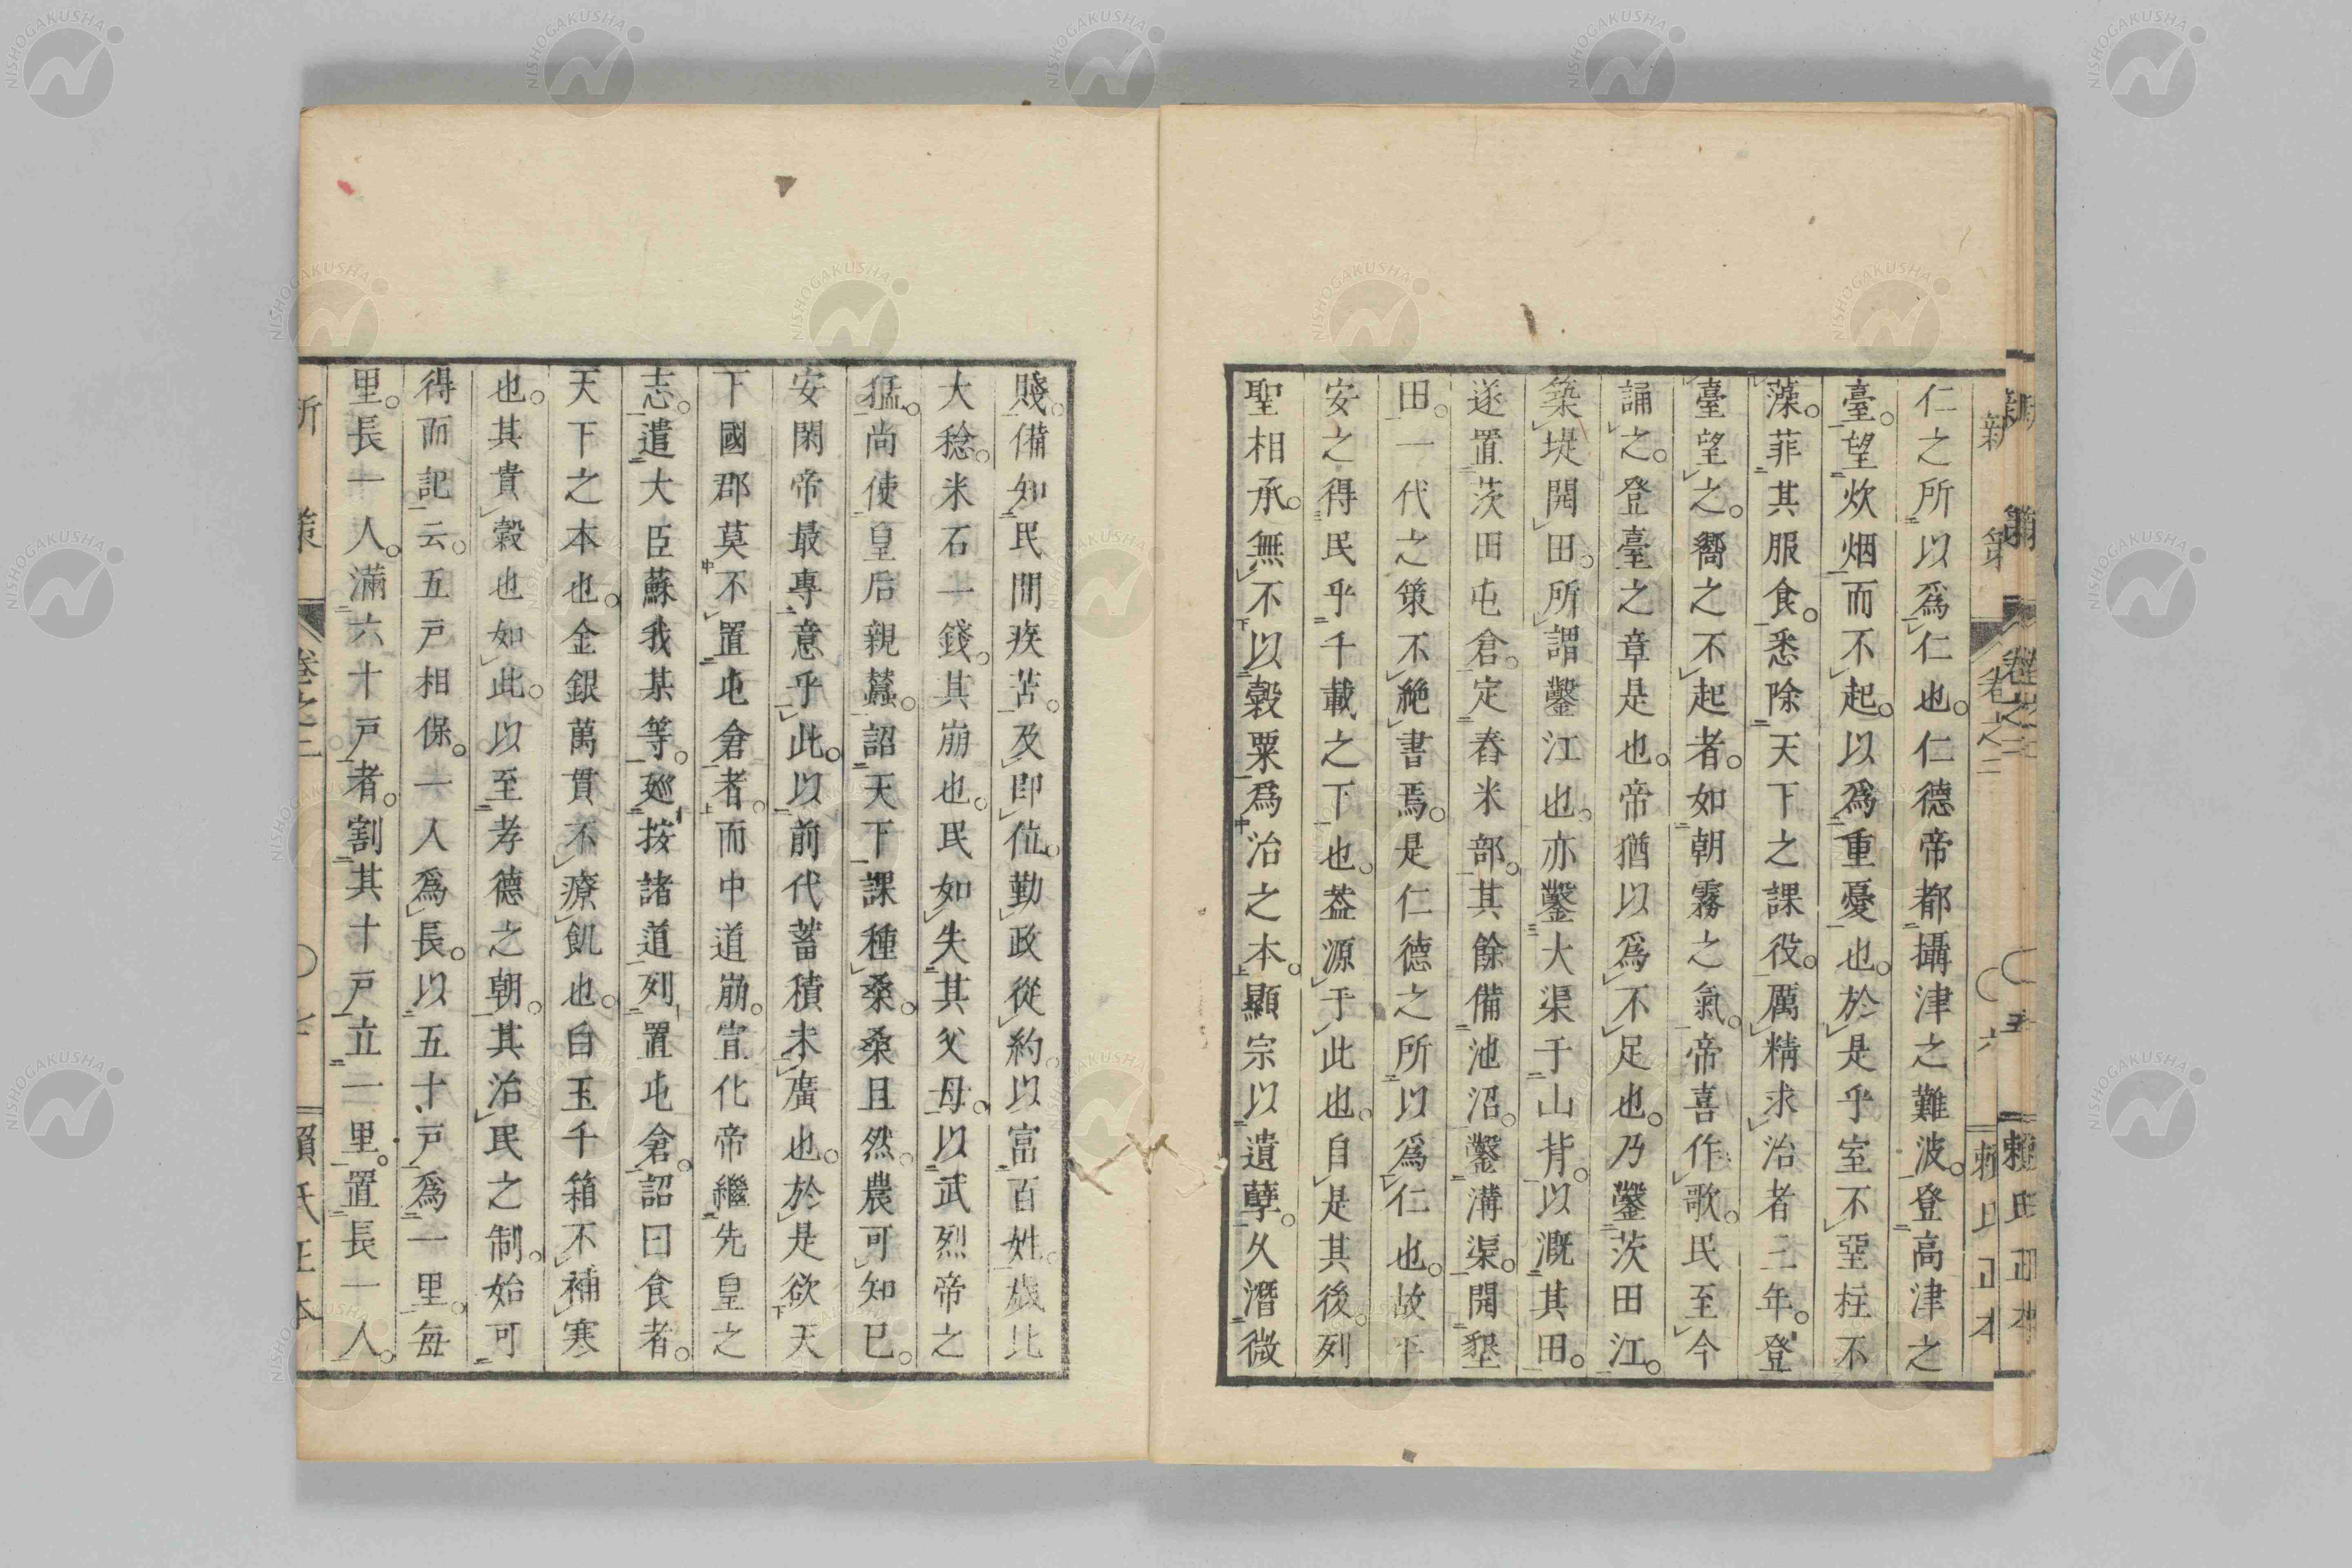 仁之所以爲仁也。仁德帝都攝津之難波。登高津之
臺。望炊烟而不起。以爲重憂也。於是乎室不堊柱不
藻。菲其服食。悉除天下之課役。厲精求治者三年。登
臺望之。嚮之不起者。如朝霧之氣。帝喜作歌。民至今
誦之。登臺之章是也。帝猶以爲不足也。乃鑿茨田江。
築堤開田。所謂鑿江也。亦鑿大渠于山背。以溉其田。
遂置茨田屯倉。定舂米部。其餘備池沼。鑿溝渠。開墾
田。一代之策不絶書焉。是仁德之所以爲仁也。故下
安之得民乎千載之下也。盖源于此也。自是其後。列
聖相承。無不以穀粟爲治之本。顯宗以遺孽。久潛微
賤。備知民間疾苦。及即位。勤政從約。以富百姓。歳比
大稔。米石一錢。其崩也。民如失其父母。以武烈帝之
猛。尚使皇后親蠶。詔天下課種桑。桑且然。農可知已。
安閑帝最專意乎此。以前代蓄積未廣也。於是欲天
下國郡莫不置屯倉者。而中道崩。宣化帝繼先皇之
志。遣大臣蘇我某等。廵按諸道列置屯倉。詔曰食者。
天下之本也。金銀萬貫不療飢也。白玉千箱不補寒
也。其貴穀也如此。以至孝德之朝。其治民之制。始可
得而記云。五戸相保。一人爲長。以五十戸爲一里。毎
里。長一人。滿六十戸者。割其十戸立一里。置長一人。
新策 卷之二 賴氏正本